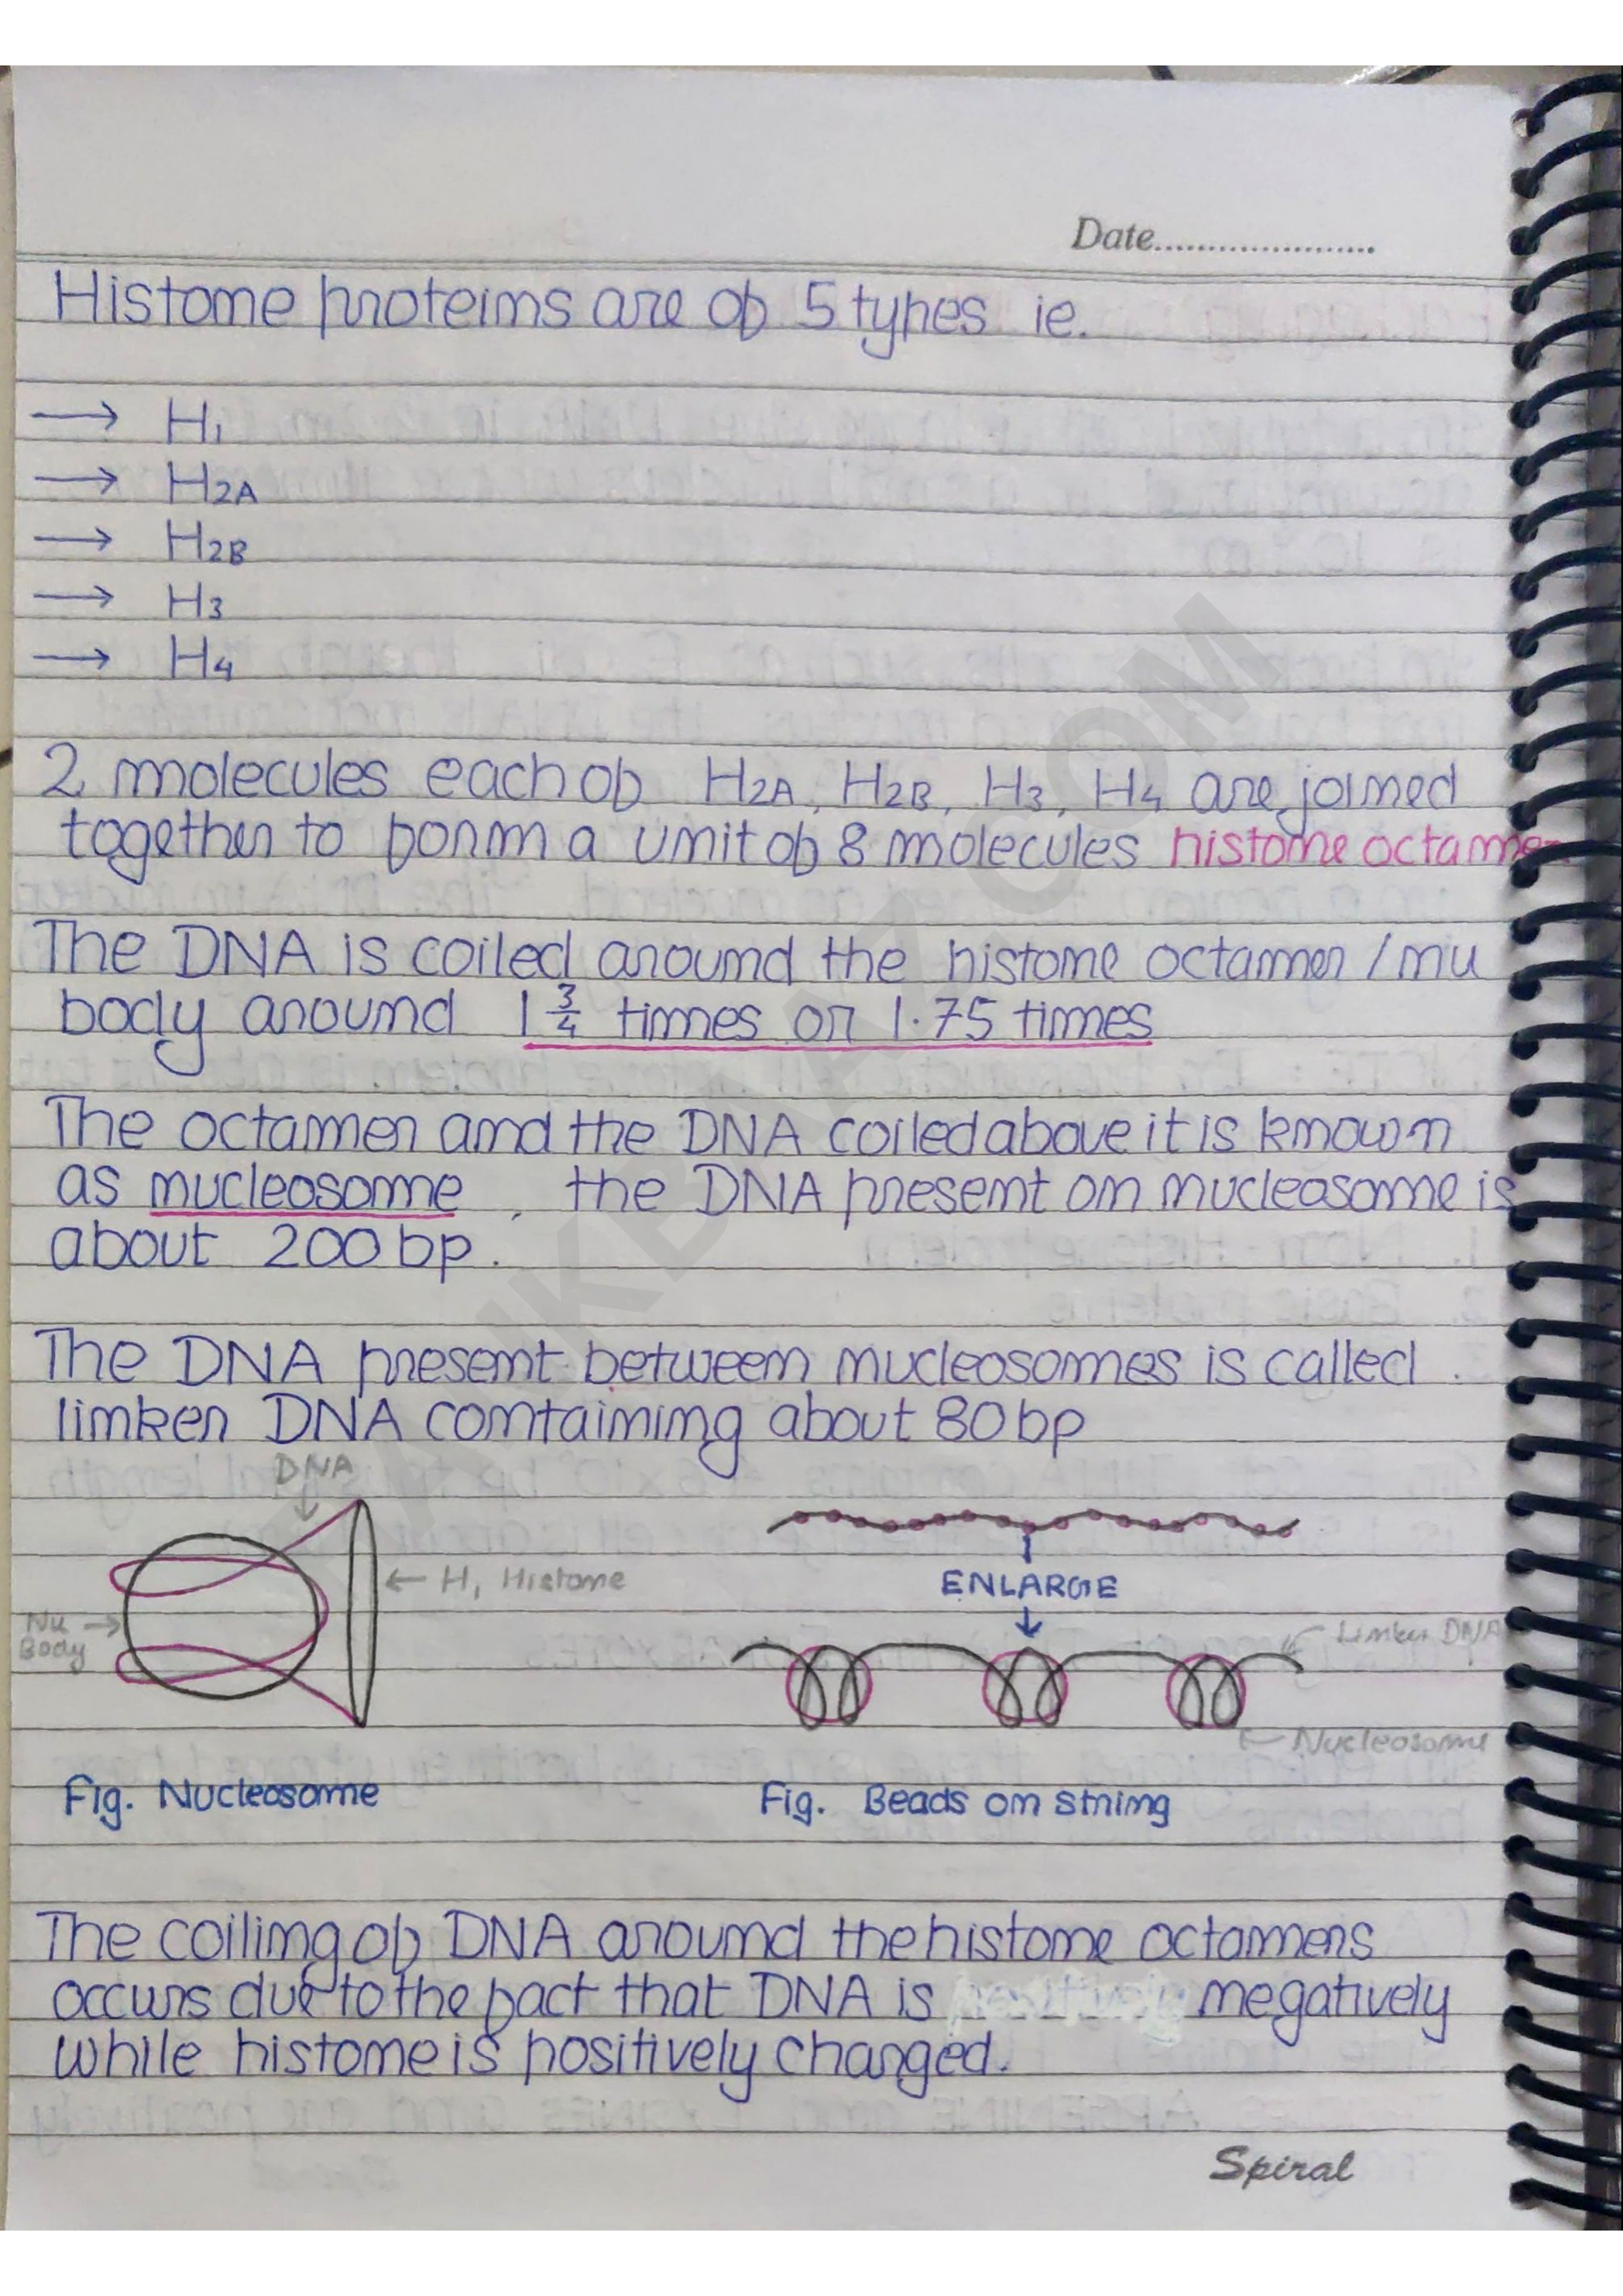 Date.....................
Histone proteins are of 5 types ie.
→ H1
→ H2A
→ H2B
→ H3
→ H4
2 molecules each of H2A, H2B, H3, H4 are joined
together to form a unit of 8 molecules histone octamer
The DNA is coiled around the histone octamer / nu
body around 1 3/4 times or 1.75 times
The octamer and the DNA coiled above it is known
as nucleosome, the DNA present on nucleosome is
about 200 bp.
The DNA present between nucleosomes is called
linker DNA containing about 80 bp
DNA
← H1 Histone
Nu →
Body
ENLARGE
Linker DNA
← Nucleosome
Fig. Nucleosome
Fig. Beads on string
The coiling of DNA around the histone octamers
occurs due to the fact that DNA is negatively
while histone is positively charged.
Spiral